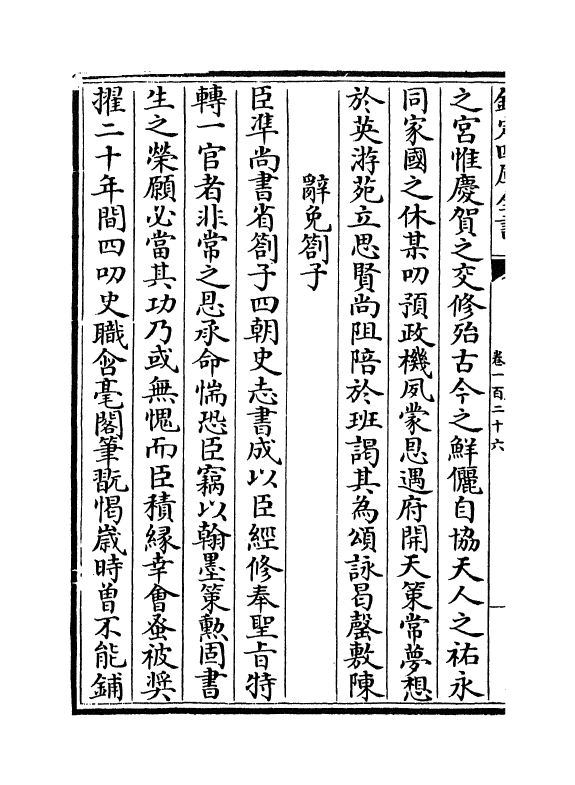 欽定四庫全書
卷一百二十六
之宮惟慶賀之交修殆古今之鮮儷自協天人之祐永
同家國之休某叨預政機夙蒙恩遇府開天策常夢想
於英游苑立思賢尚阻陪於班謁其為頌詠曷罄敷陳
辭免劄子
臣準尚書省劄子四朝史志書成以臣經修奉聖旨特
轉一官者非常之恩承命惴恐臣竊以翰墨策勲固書
生之榮願必當其功乃或無愧而臣積緣幸會蚤被奬
擢二十年間四叨史職含毫閣筆翫愒歲時曾不能鋪